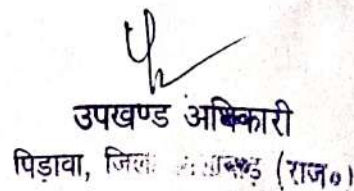 उपखण्ड अधिकारी
पिड़ावा, जिला (राज०)